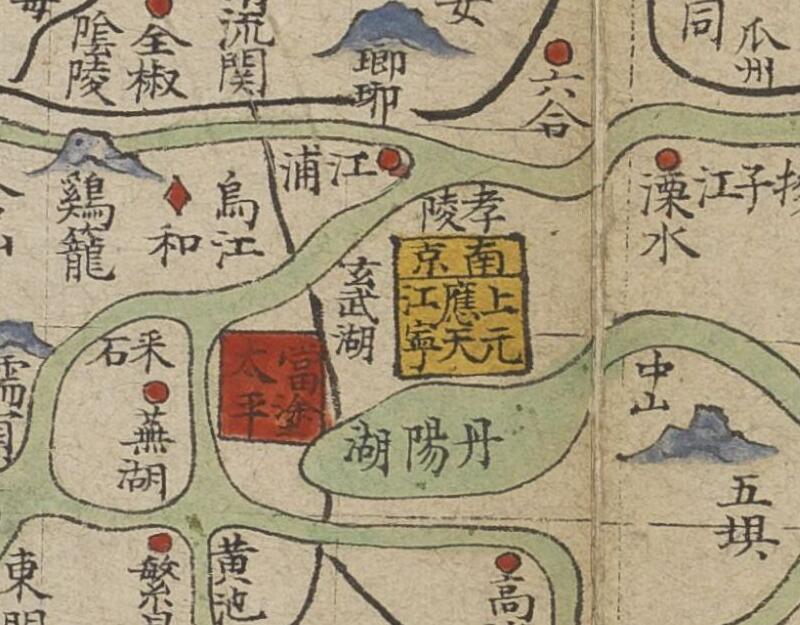 隂陵
全椒
流関
瑯琊
六合
同
瓜州
江浦
子江
溧水
烏江
和
鷄籠
孝陵
南京
上元
應天
江寧
玄武湖
采石
蕪湖
當塗
太平
丹陽湖
中山
五垻
東
繁
黄池
高